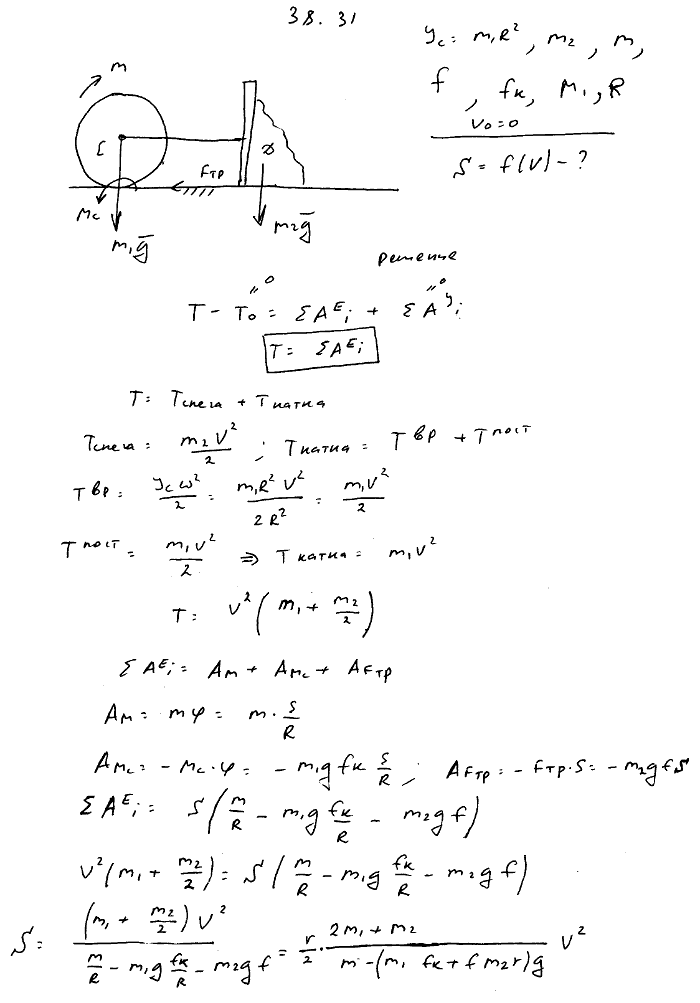 38.31
Jc = m₁R², m₂, m,
f, fк, M₁, R
V₀=0
S = f(V) - ?
m
C
Fтр
Mc
m₁g̅
m₂g̅
Решение
"0 "0
T - T₀ = ΣAᴱᵢ + ΣAᴶᵢ
T = ΣAᴱᵢ
T = Tснега + Tкатка
Tснега = m₂V²/2 ; Tкатка = Tᵇᵖ + Tᵖᵒᶜᵀ
Tвр = Jcω²/2 = m₁R²V²/2R² = m₁V²/2
Tпост = m₁V²/2 ⇒ Tкатка = m₁V²
T = V²(m₁ + m₂/2)
ΣAᴱᵢ = Aм + Aмc + AFтр
Aм = mφ = m · S/R
Aмc = - Mc·φ = - m₁g fк S/R ; AFтр = - Fтр·S = - m₂gfS
ΣAᴱᵢ = S(m/R - m₁g fк/R - m₂gf)
V²(m₁ + m₂/2) = S(m/R - m₁g fк/R - m₂gf)
S = (m₁ + m₂/2)V² / (m/R - m₁g fк/R - m₂gf) = r/2 · (2m₁ + m₂)/(m - (m₁fк + fm₂r)g) V²